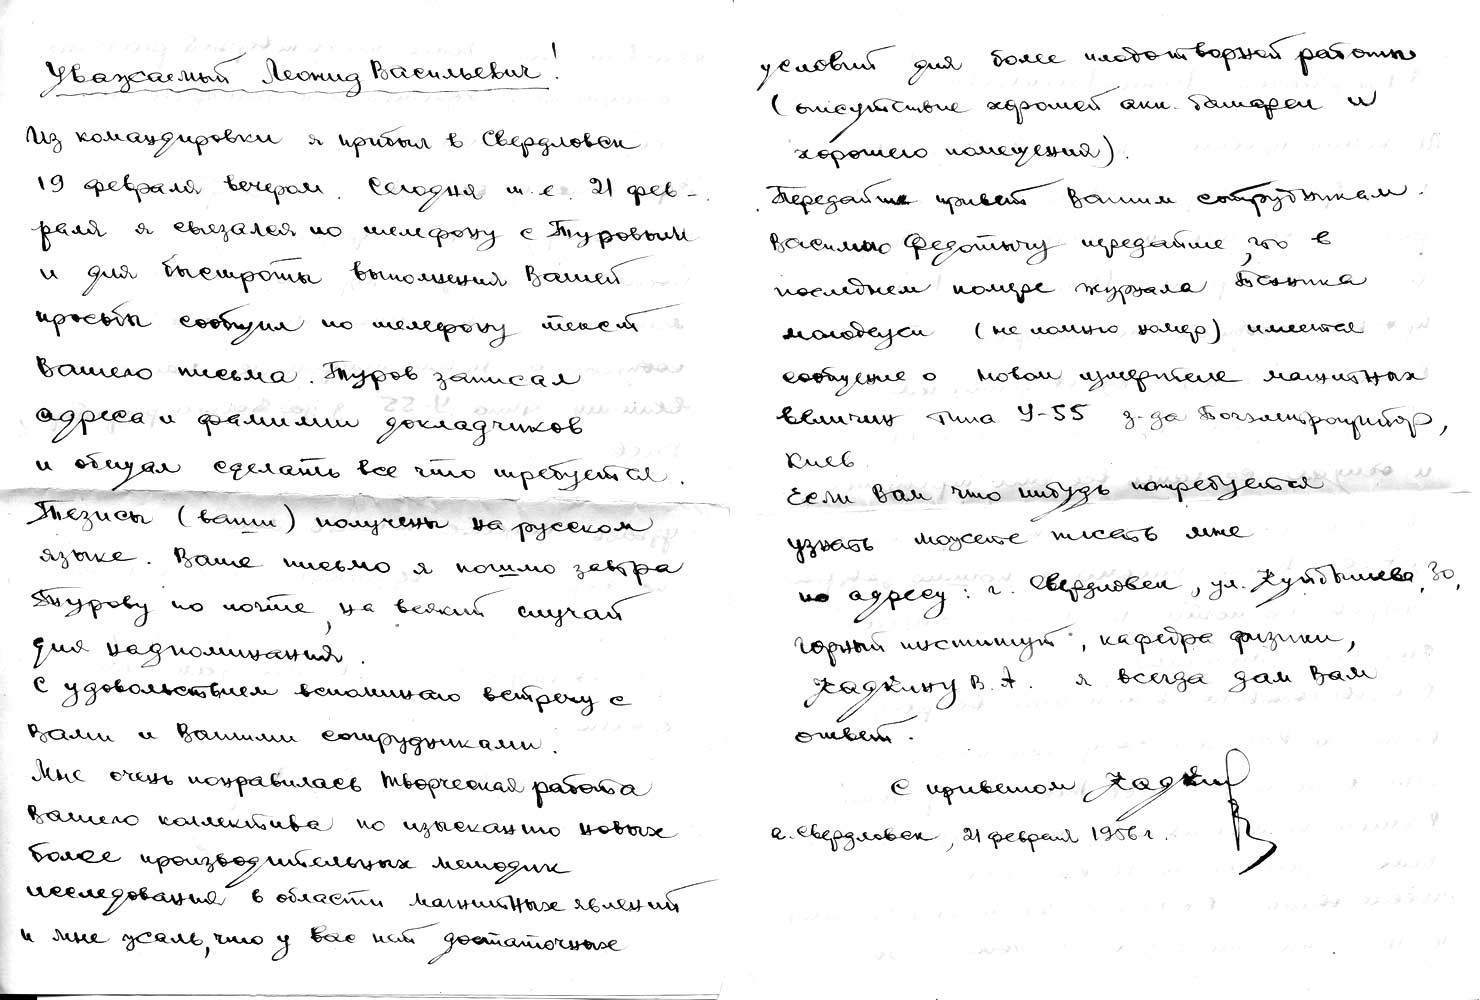 Уважаемый Леонид Васильевич!
Из командировки я прибыл в Свердловск
19 февраля вечером. Сегодня т.е. 21 фев-
раля я связался по телефону с Туровым
и для быстроты выполнения Вашей
просьбы сообщил по телефону текст
Вашего письма. Туров записал
адреса и фамилии докладчиков
и обещал сделать все что требуется.
Тезисы (ваши) получены на русском
языке. Ваше письмо я пошлю завтра
Турову по почте, на всякий случай
для надпоминания.
С удовольствием вспоминаю встречу с
Вами и Вашими сотрудниками.
Мне очень понравилась творческая работа
Вашего коллектива по изысканию новых
более производительных методик
исследования в области магнитных явлений
и мне жаль, что у вас нет достаточных
условий для более плодотворной работы
(отсутствие хорошей акк. батареи и
хорошего помещения).
Передайте привет Вашим сотрудникам.
Василию Федотычу передайте, что в
последнем номере журнала Техника
молодежи (не помню номер) имеется
сообщение о новом измерителе магнитных
величин типа У-55 з-да Точэлектроприбор,
Киев
Если Вам что нибудь потребуется
узнать можете писать мне
по адресу: г. Свердловск, ул. Куйбышева, 30,
горный институт, кафедра физики,
В. А. я всегда дам Вам
ответ.
С приветом
г. Свердловск, 21 февраля 1956 г.